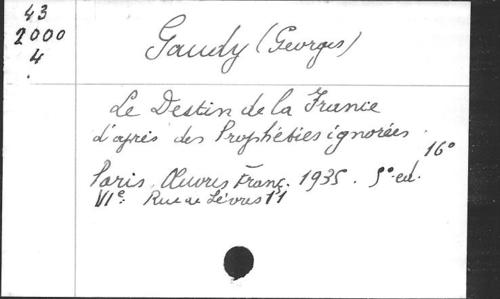 43
2000
4
Gaudy (Georges)
Le Destin de la France
d'après des Prophéties ignorées.
16°
Paris. Œuvres Franç. 1935. 5° ed.
VIe. Rue de Sèvres 11